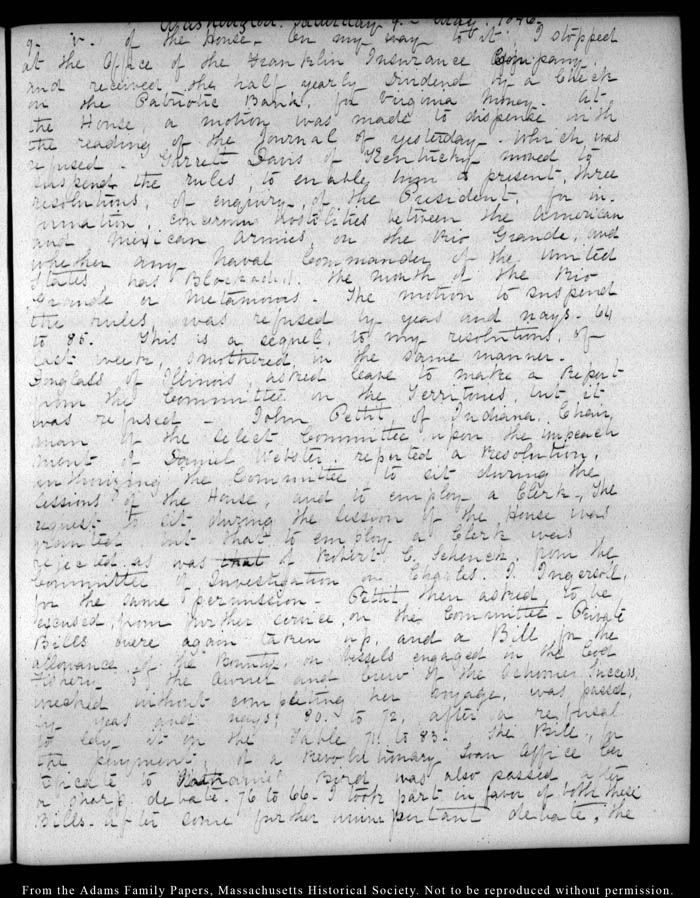 Washington. Saturday 9. May. 1846.
9. V. of the House. On my way to it I stopped
at the Office of the Franklin Insurance Company.
and received the half yearly Dividend by a Check
on the Patriotic Bank, for Virginia Money. At
the House, a motion was made to dispense with
the reading of the Journal of yesterday. Which was
refused. Garrett Davis of Kentucky moved to
suspend the rules, to enable him to present, three
resolutions, of enquiry, of the President, for in-
formation, concerning hostilities between the American
and Mexican Armies, on the Rio Grande, and
whether any Naval Commander of the United
States, has Blockaded. the mouth of the Rio
Grande or Metamoros. The motion to suspend
the rules, was refused by yeas and nays. 64
to 85. This is a sequel, to my resolutions, of
last week, smothered, in the same manner.
Douglass of Illinois, asked leave to make a Report
from the Committee on the Territories, but it
was refused – John Pettit, of Indiana, Chair,
man of the select Committee upon the impeach
ment of Daniel Webster. reported a Resolution,
authorizing the Committee to sit during the
sessions of the House, and to employ a Clerk. The
request to sit during the session of the House was
granted, but that to employ a Clerk was
rejected, as was that of Robert C. Schenck, from the
Committee of Investigation on Charles. J. Ingersoll,
for the same permission – Pettit then asked, to be
excused, from further service, on the Committee – Private
Bills were again taken up, and a Bill for the
allowance, of the Bounty, on vessels engaged in the Cod
Fishery to the Owner and Crew of the Schooner Success,
wrecked without completing her voyage, was passed,
by yeas and nays, 80. to 72, after a refusal
to lay it on the Table 71 to 83. The Bill, for
the payment, of a Revolutionary Loan Office Cer
tificate to Nathaniel Bird was also passed after
a sharp debate. 76 to 66. I took part in favor of both these
Bills. After some further unimportant debate, the
From the Adams Family Papers, Massachusetts Historical Society. Not to be reproduced without permission.